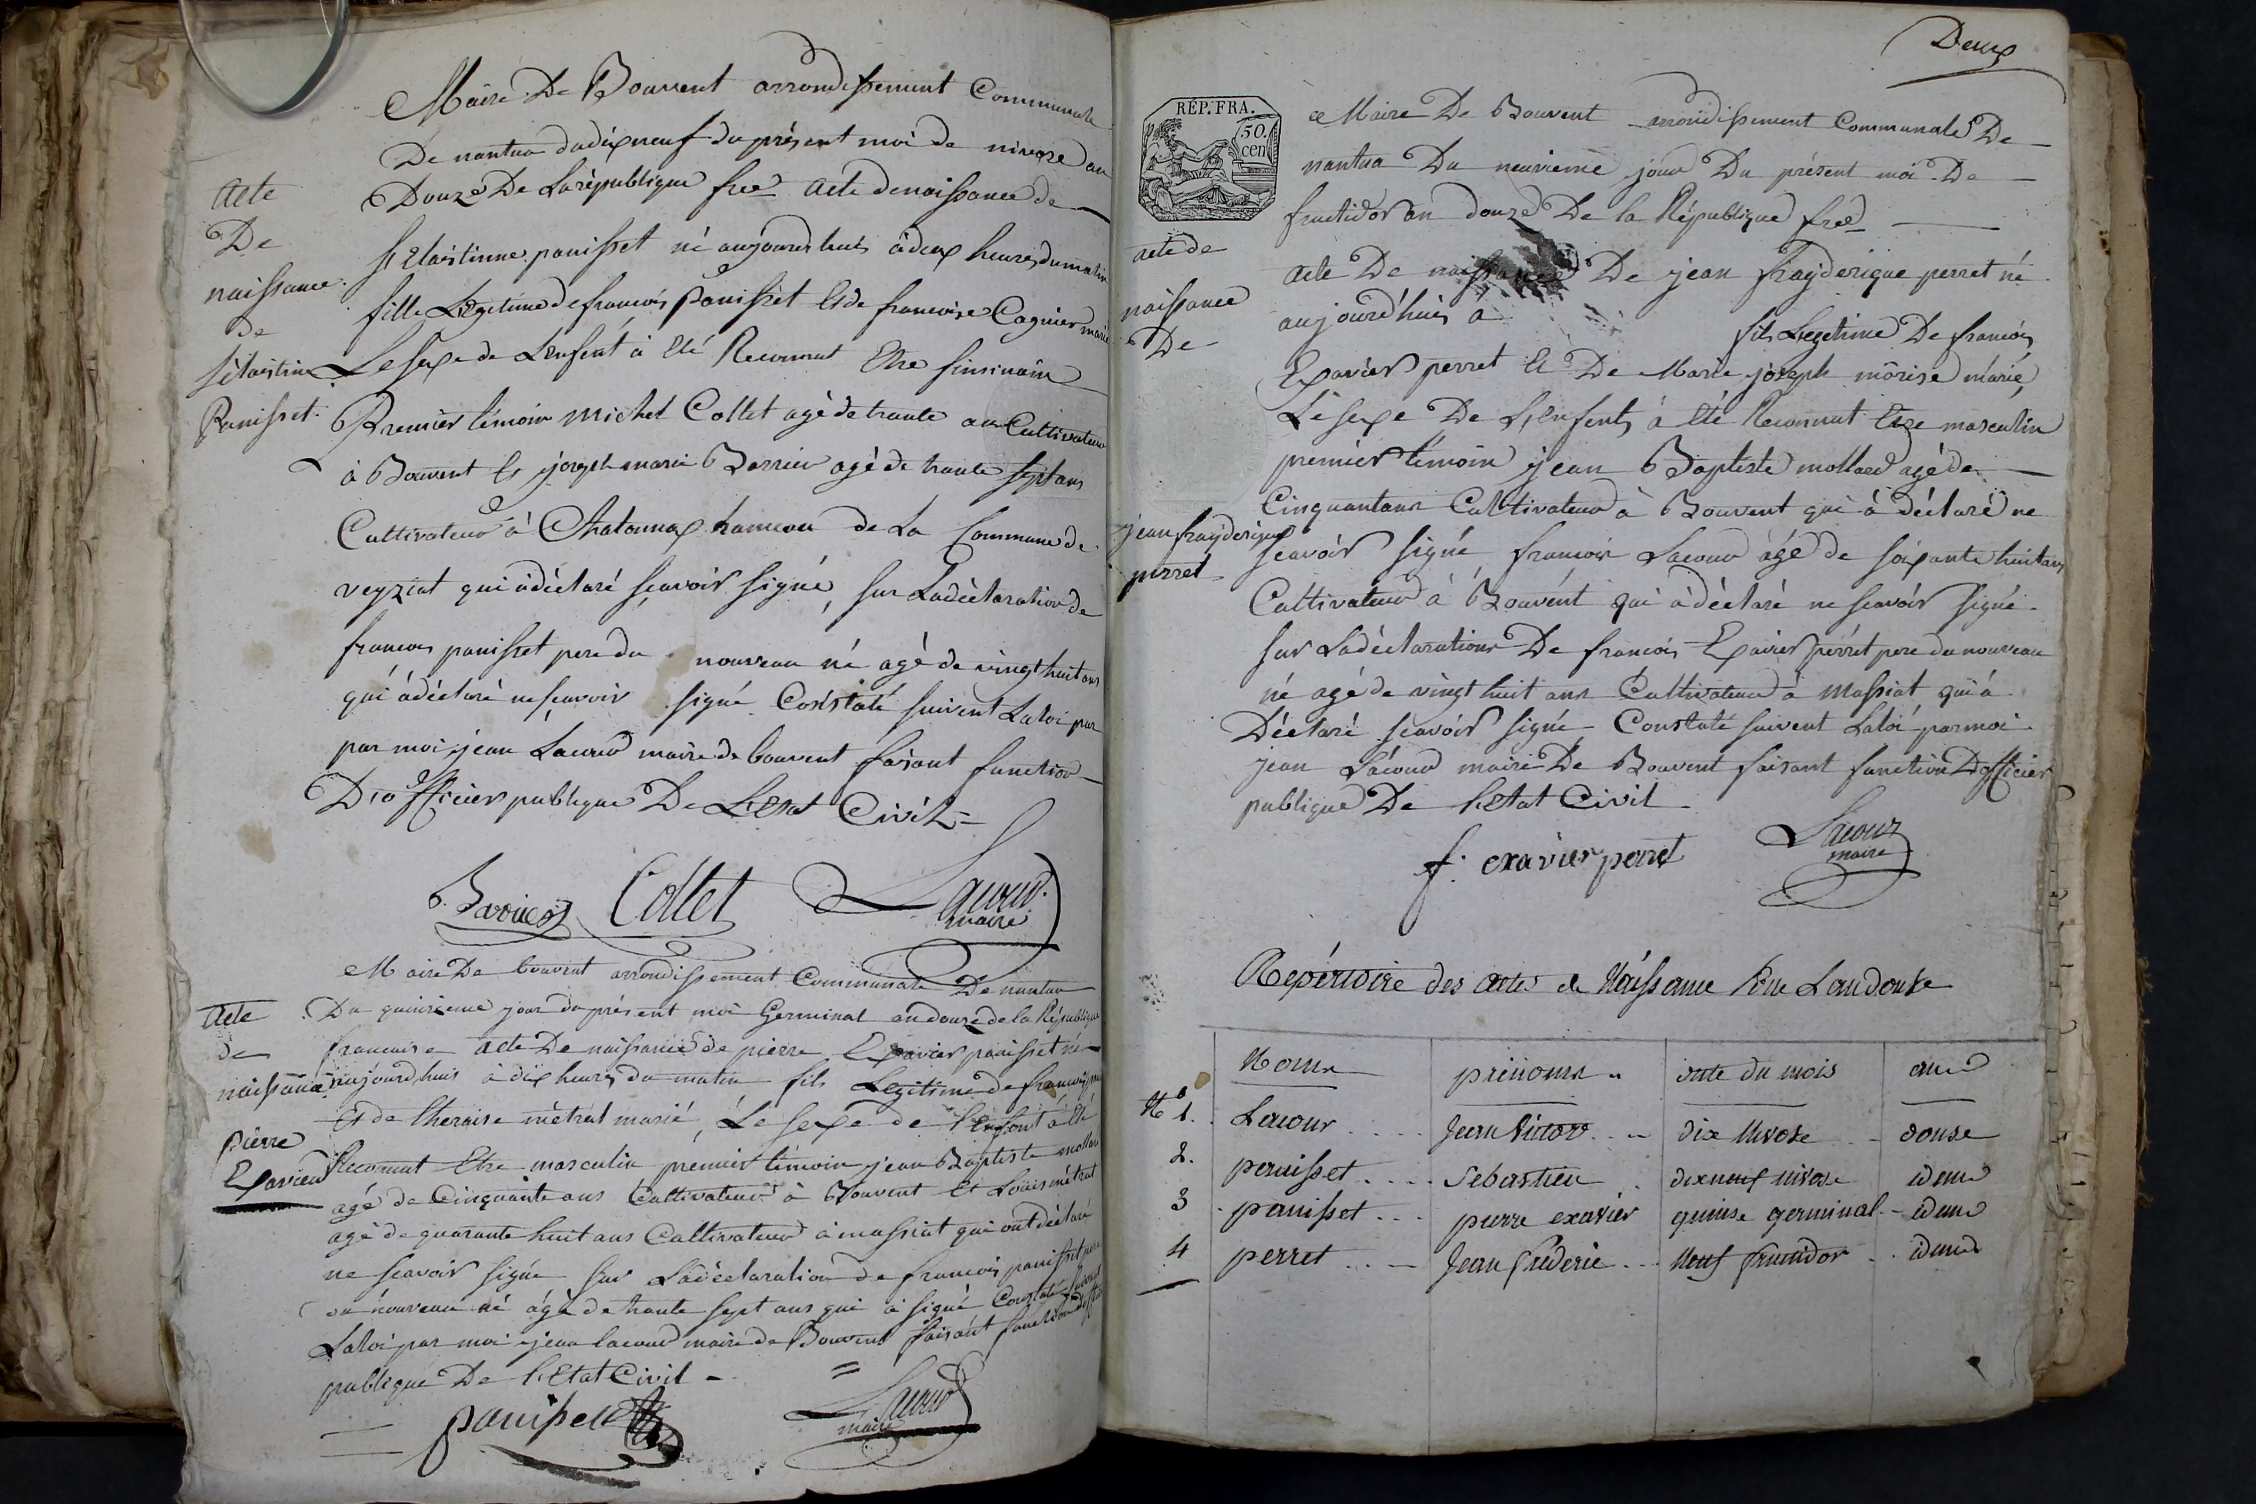 Maire De Bouvent arrondissement Communale
De nantua du dix neuf du présent moi de nivose an
Douze De La république free acte de naissance de
Acte
De
naissance
de
Panisset
panisset né aujourdhuis à deux heures du matin
fille Legitime de francois Panisset Et de francoise Cagnier marié
Le sexe de L'enfent à été Reconnut Etre
Premier témoin Michel Collet agé de trante an Cultivateur
à Bouvent Et joseph marie Barrier agé de trante sept ans
Cultivateur à Chatonnax hameau de La Commune de
veyziat qui à déclaré sçavoir signé, sur La déclaration de
francois panisset pere du nouveau né agé de vingt huit ans
qui à déclaré ne sçavoir signé Constaté suivent La loi par
par moi jean Lacour maire de bouvent faisant function
D'officier publique De L'Etat Civil =
Barrier Collet Lacour
maire
Maire De bouvent arrondissement Communale De nantua
Acte
de
naissance
pierre
Exavier
Du quinzieme jour du présent moi Germinal an douze de la République
francaise acte De naissance de pierre Exavier panisset né
aujourd'huis à dix heures du matin fils Legitime de francois
Et de theraise métral marié, Le sexe de L'Enfent à Eté
Reconnut Etre masculin premier témoin jean Baptiste mollard
agé de Cinquante ans Cultivateur à Bouvent Et Louis métral
agé de quarante huit ans Cultivateur à massiat qui ont déclaré
ne scavoir signé sur La déclaration de francois panisset pere
du nouveau né agé de trante sept ans qui à signé Constaté suivent
La loi par moi jean lacour maire de Bouvent faisant function
publique De L'Etat Civil =
panisset Lacour
maire
Deux
RÉP. FRA.
50.
cen
Maire De Bouvent arrondissement Communale De
nantua Du neuvieme jour Du présent moi De
fructidor an douze De la République free
acte de
naissance
De
jean frayderique
perret
acte De naissance De jean frayderique perret né
aujourd'huis à fils Legetime De francois
Exavier perret Et De Marie joseph morise marié,
Le sexe De L'Enfent à été Reconnut Etre masculin
premier témoin jean Baptiste mollard agé de
Cinquantans Cultivateur à Bouvent qui à déclaré ne
scavoir signé francois Lacour agé de soixante huit ans
Cultivateur à Bouvent qui à déclaré ne scavoir signé
sur La déclaration De francois Exavier perret pere du nouveau
né agé de vingt huit ans Cultivateur à Massiat qui à
Déclaré scavoir signé Constaté suivent La loi par moi
jean Lacour maire De Bouvent faisant function D'officier
publique De L'Etat Civil
f. exavier perret Lacour
maire
Repértoire des actes de Naissance Lan douse
Noms prénoms date du mois an
N° 1. Lacour Jean Victor dix Nivose douse
2. panisset Sebastien dixneuf nivose idem
3 panisset pierre exavier quinse germinal idem
4 perret Jean frédéric Neuf fructidor idem